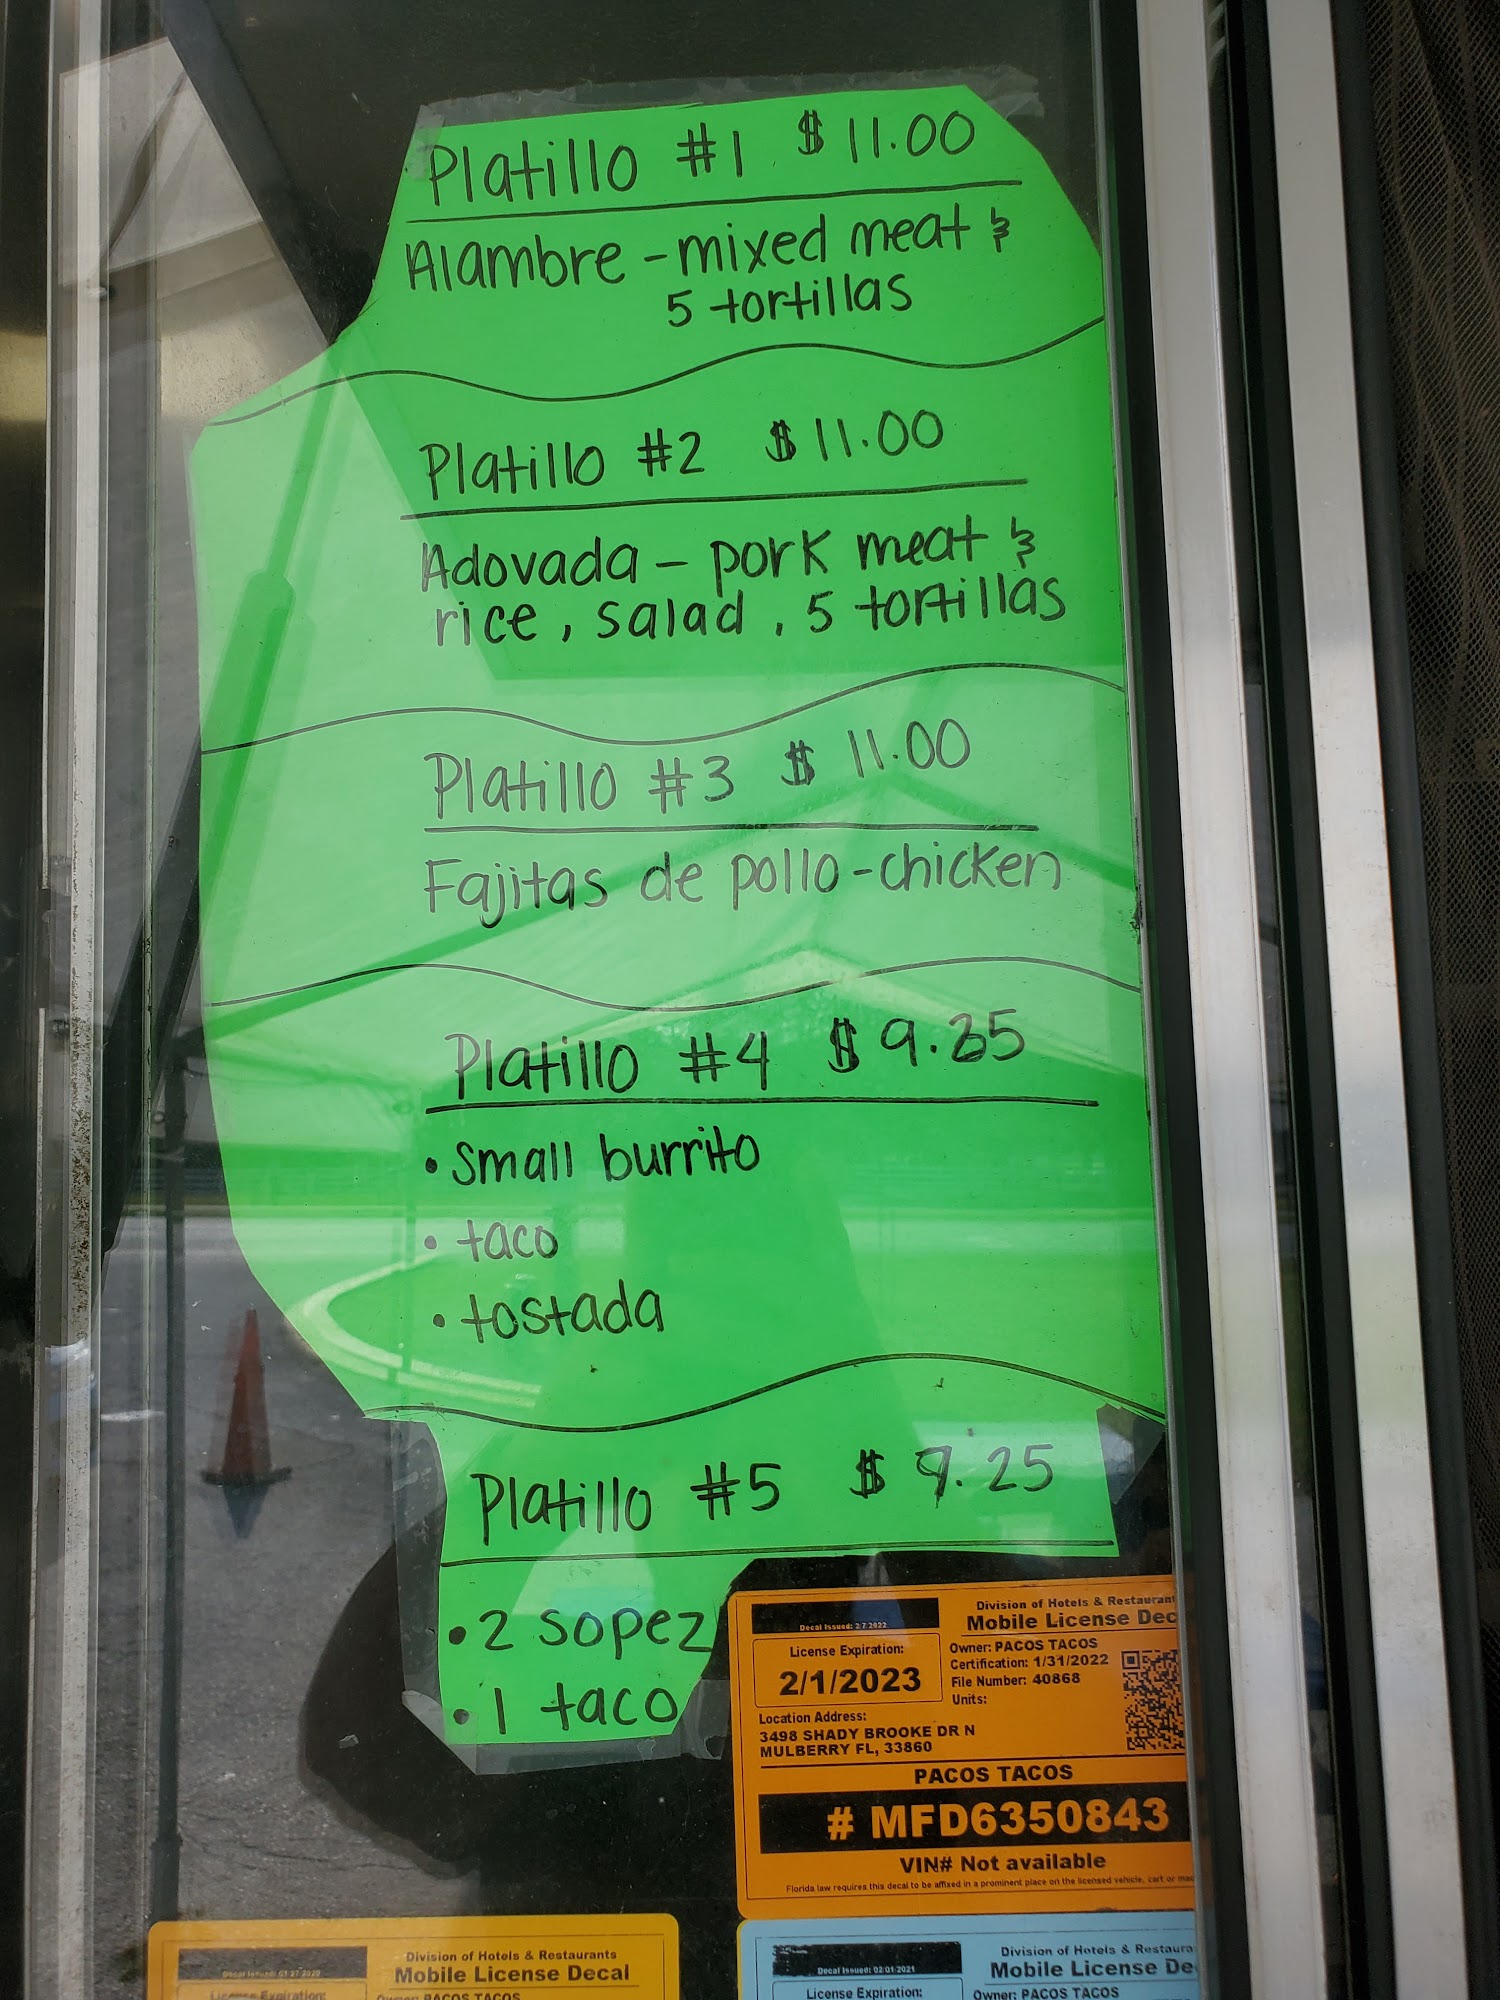 Platillo #1 $11.00
Alambre - mixed meat &
5 tortillas
Platillo #2 $11.00
Adovada - pork meat &
rice, salad, 5 tortillas
Platillo #3 $11.00
Fajitas de pollo - chicken
Platillo #4 $9.25
• small burrito
• taco
• tostada
Platillo #5 $9.25
• 2 sopez
• 1 taco
Decal Issued: 2/7/2022
License Expiration:
2/1/2023
Division of Hotels & Restaurant
Mobile License Dec
Owner: PACOS TACOS
Certification: 1/31/2022
File Number: 40868
Units:
Location Address:
3498 SHADY BROOKE DR N
MULBERRY FL, 33860
PACOS TACOS
# MFD6350843
VIN# Not available
Florida law requires this decal to be affixed in a prominent place on the licensed vehicle, cart or
Division of Hotels & Restaurants
Mobile License Decal
License Expiration:
Owner: PACOS TACOS
Decal Issued: 02/01/2021
License Expiration:
Division of Hotels & Restaura
Mobile License De
Owner: PACOS TACOS